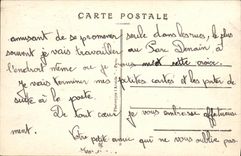 CARTE POSTALE
amusant de se promener seule dans les rues, le plus
souvent je vais travailler au Parc Denain à
l'endroit même où je vous met cette croix.
Je vais terminer mes petites cartes et les porter de
suite à la poste.
De tout cœur je vous embrasse affectueuse
ment.
Votre petite amie qui ne vous oublie pas